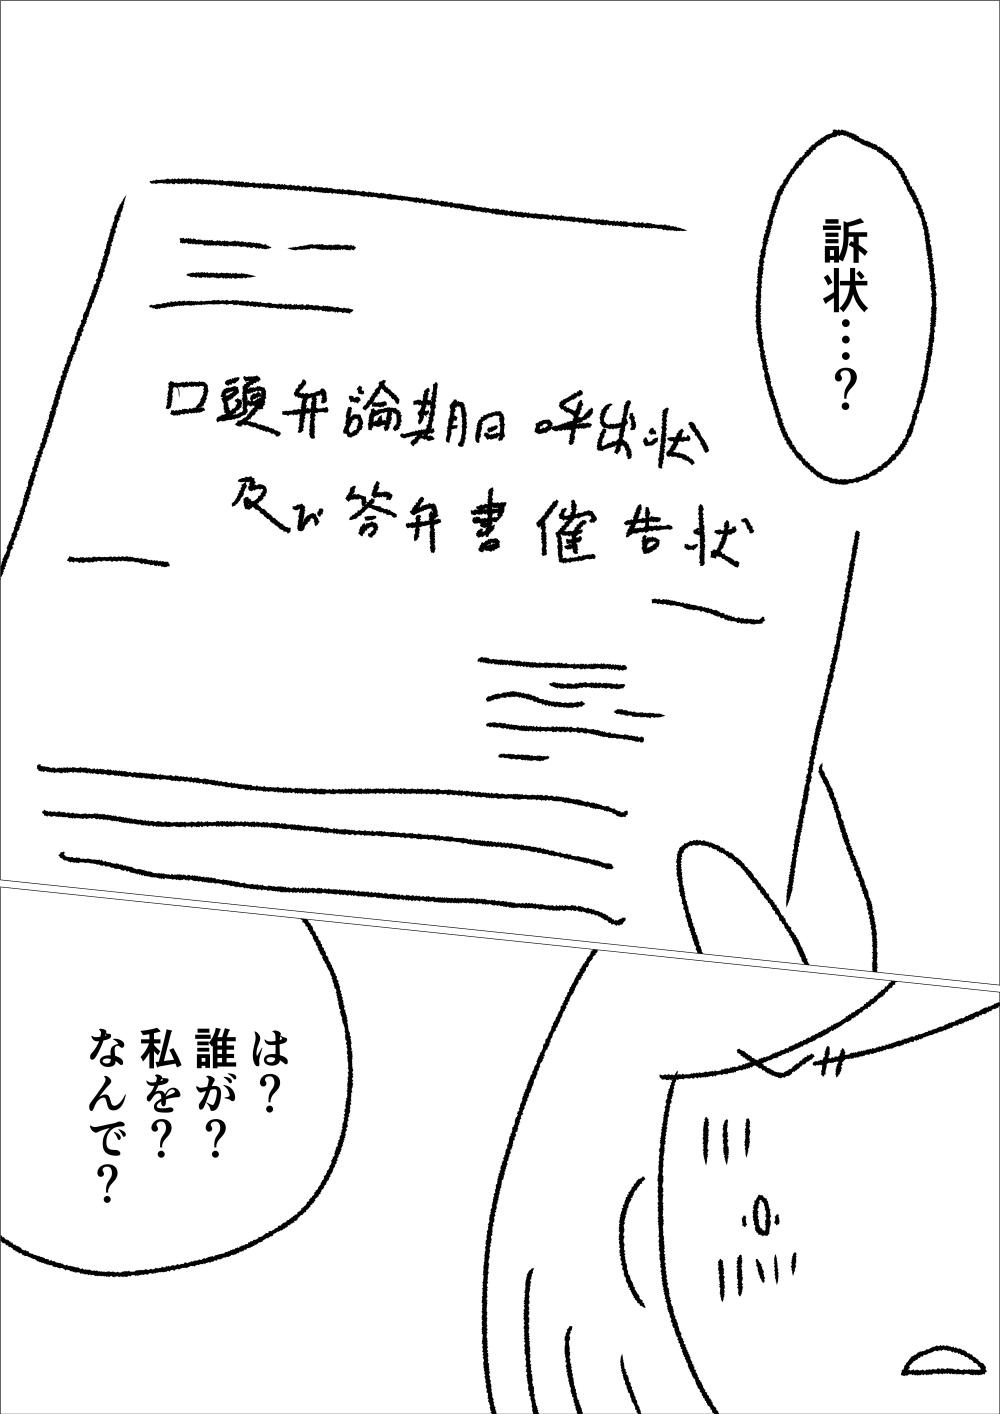 訴状…?
口頭弁論期日呼出状
及び答弁書催告状
は?
誰が?
私を?
なんで?